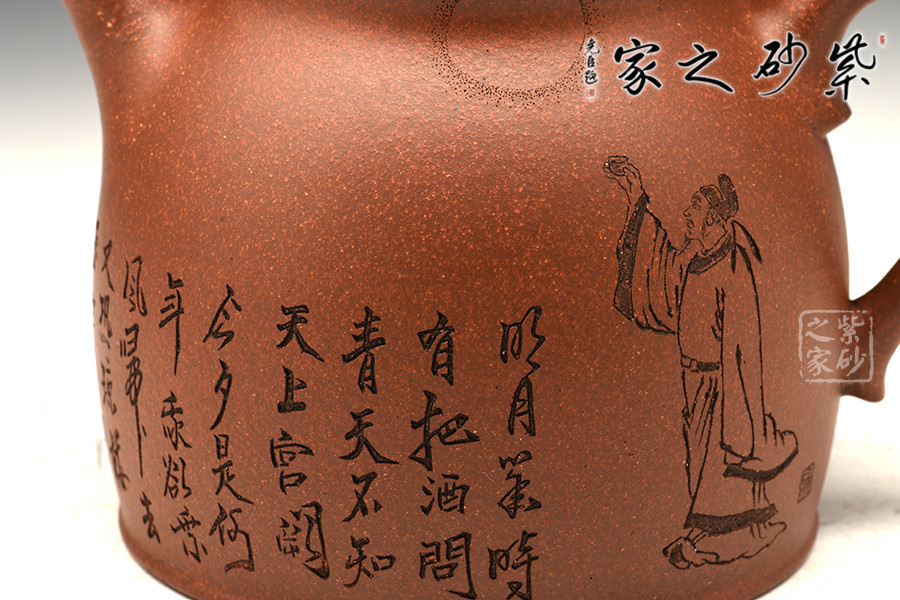 紫砂之家
堯臣題
明月幾時
有把酒問
青天不知
天上宮闕
今夕是何
年我欲乘
風歸去
又恐瓊樓
紫砂
之家